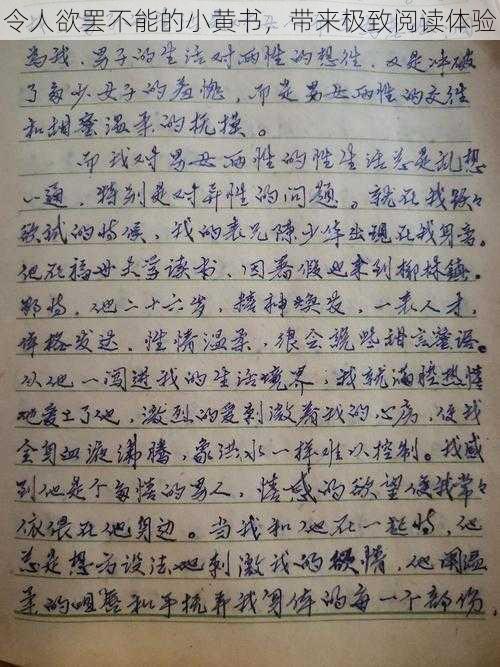 令人欲罢不能的小黄书，带来极致阅读体验
为我，男子的生活对两性的想往，又是冲破
了多少女子的羞惭，而是男女两性的交往
和甜蜜温柔的抚摸。
而我对男女两性的性生活总是乱想
一通，特别是对异性的问题。就在我跃々
欲试的时候，我的表兄陈少华出现在我身旁。
他在福母大学读书，因暑假也来到柳株镇。
那时，他二十六岁，精神焕发，一表人才，
体格发达，性情温柔，很会说些甜言蜜语。
从他一闯进我的生活境界，我就满腔热情
地爱上了他，激烈的爱刺激着我的心房，使我
全身血液沸腾，象洪水一样难以控制。我感
到他是个多情的男人，情感的欲望使我常々
依偎在他身边。当我和他在一起时，他
总是想方设法地刺激我的欲情，他用温
柔的咀唇和手抚弄我身体的每一个部份，